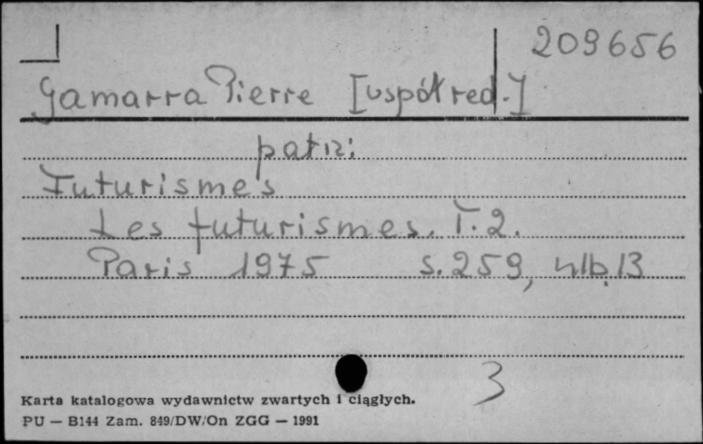 209656
Gamarra Pierre [współred.]
patrz:
Futurismes
Les futurismes. T. 2.
Paris 1975 s. 259, nlb. 13
3
Karta katalogowa wydawnictw zwartych i ciągłych.
PU — B144 Zam. 849/DW/On ZGG — 1991